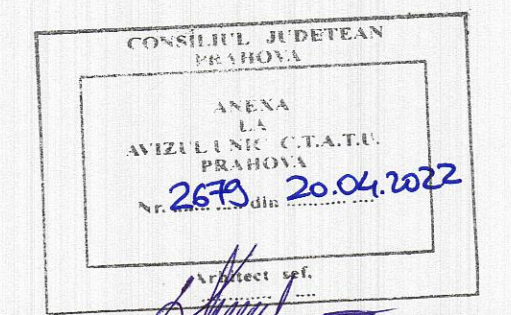 CONSILIUL JUDETEAN
PRAHOVA
ANEXA
LA
AVIZUL UNIC C.T.A.T.U.
PRAHOVA
Nr. 2679 din 20.04.2022
Arhitect sef.